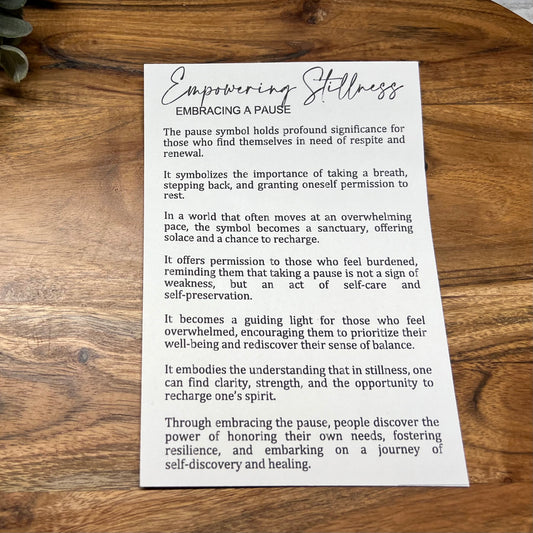 Empowering Stillness
EMBRACING A PAUSE
The pause symbol holds profound significance for
those who find themselves in need of respite and
renewal.
It symbolizes the importance of taking a breath,
stepping back, and granting oneself permission to
rest.
In a world that often moves at an overwhelming
pace, the symbol becomes a sanctuary, offering
solace and a chance to recharge.
It offers permission to those who feel burdened,
reminding them that taking a pause is not a sign of
weakness, but an act of self-care and
self-preservation.
It becomes a guiding light for those who feel
overwhelmed, encouraging them to prioritize their
well-being and rediscover their sense of balance.
It embodies the understanding that in stillness, one
can find clarity, strength, and the opportunity to
recharge one's spirit.
Through embracing the pause, people discover the
power of honoring their own needs, fostering
resilience, and embarking on a journey of
self-discovery and healing.